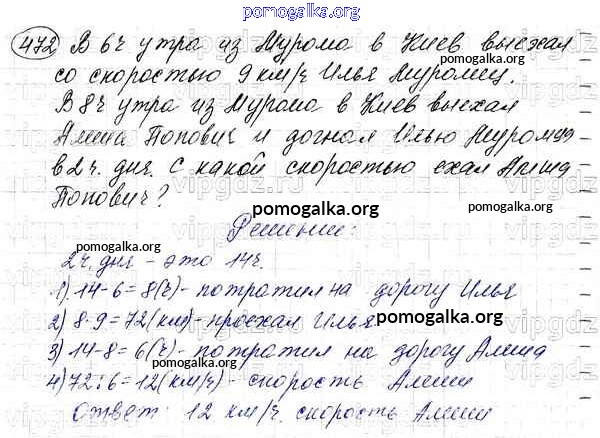 pomogalka.org
472 В 6ч утра из Мурома в Киев выехал
со скоростью 9 км/ч Илья Муромец.
В 8ч утра из Мурома в Киев выехал
Алёша Попович и догнал Илью Муромца
в 2 ч. дня. С какой скоростью ехал Алёша
Попович? pomogalka.org
Решение:
pomogalka.org
2ч. дня - это 14ч.
1) 14-6=8(ч)- потратил на дорогу Илья
2) 8·9=72(км)- проехал Илья pomogalka.org
3) 14-8=6(ч)- потратил на дорогу Алёша
4) 72:6=12(км/ч)- скорость Алёши
Ответ: 12 км/ч. скорость Алёши
pomogalka.org